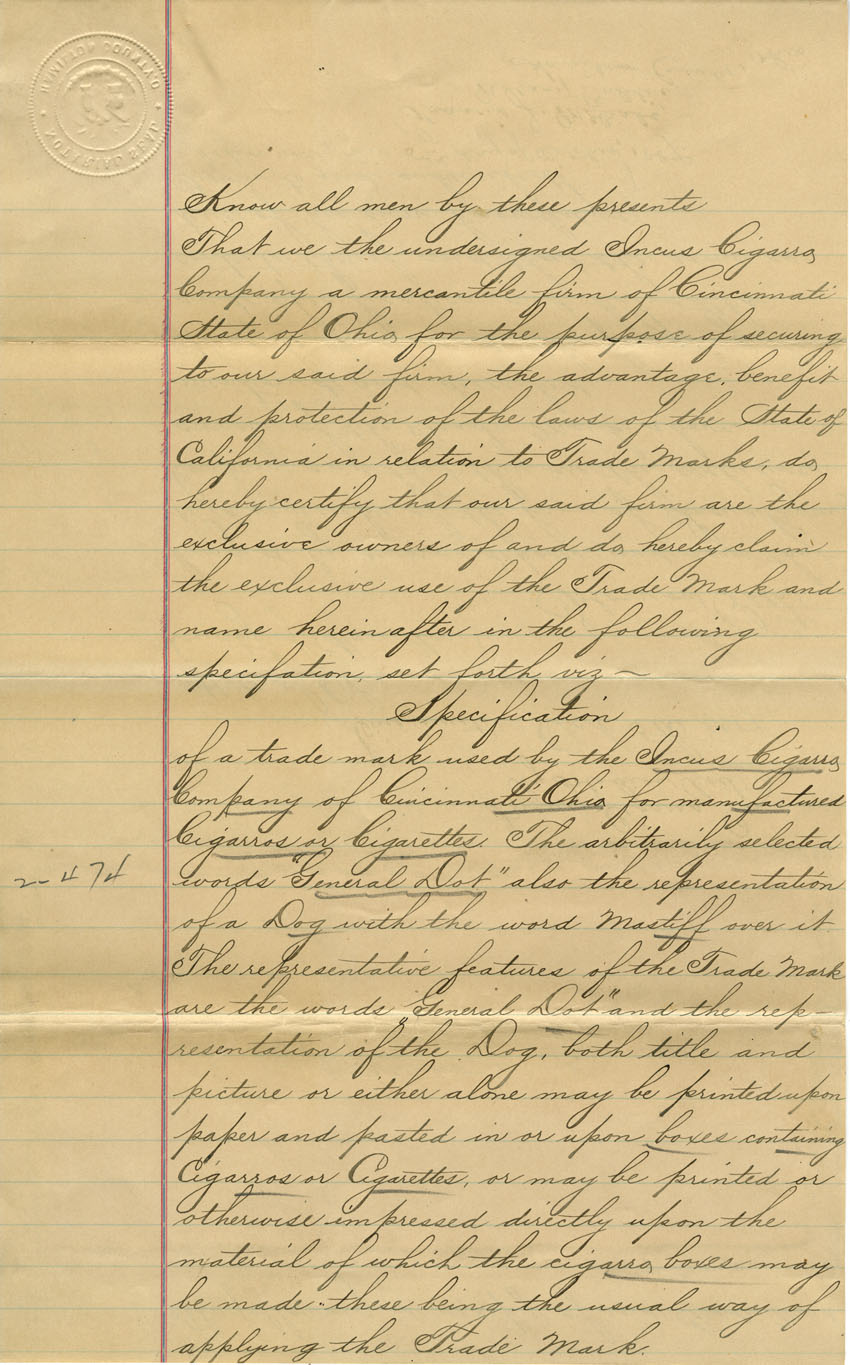 HAMILTON COUNTY, O.
NOTARIAL SEAL
Know all men by these presents
That we the undersigned Incus Cigarro
Company a mercantile firm of Cincinnati
State of Ohio for the purpose of securing
to our said firm, the advantage, benefit
and protection of the laws of the State of
California in relation to Trade Marks, do
hereby certify that our said firm are the
exclusive owners of and do hereby claim
the exclusive use of the Trade Mark and
name herein after in the following
specifation, set forth viz —
Specification
of a trade mark used by the Incus Cigarro
Company of Cincinnati Ohio for manufactured
Cigarros or Cigarettes. The arbitrarily selected
2-474
words "General Dot" also the representation
of a Dog with the word Mastiff over it
The representative features of the Trade Mark
are the words "General Dot" and the rep-
resentation of the Dog, both title and
picture or either alone may be printed upon
paper and pasted in or upon boxes containing
Cigarros or Cigarettes, or may be printed or
otherwise impressed directly upon the
material of which the cigarro boxes may
be made - these being the usual way of
applying the Trade Mark.